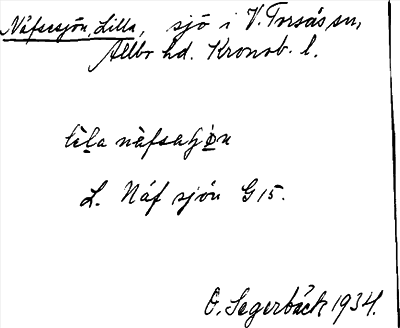 Näfsesjön, Lilla, sjö i V. Torsås sn,
Allbo hd. Kronob. l.
L. Näfsjön G15.
O. Segerbäck 1934.